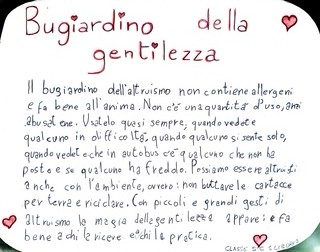 Bugiardino della
gentilezza
Il bugiardino dell'altruismo non contiene allergeni
e fa bene all'anima. Non c'è una quantità d'uso, anzi
abusatene. Usatelo quasi sempre, quando vedete
qualcuno in difficoltà, quando qualcuno si sente solo,
quando vedete che in autobus c'è qualcuno che non ha
posto e se qualcuno ha freddo. Possiamo essere altruisti
anche con l'ambiente, ovvero: non buttare le cartacce
per terra e riciclare. Con piccoli e grandi gesti di
altruismo la magia della gentilezza appare: e fa
bene a chi la riceve e a chi la pratica.
CLASSE 5